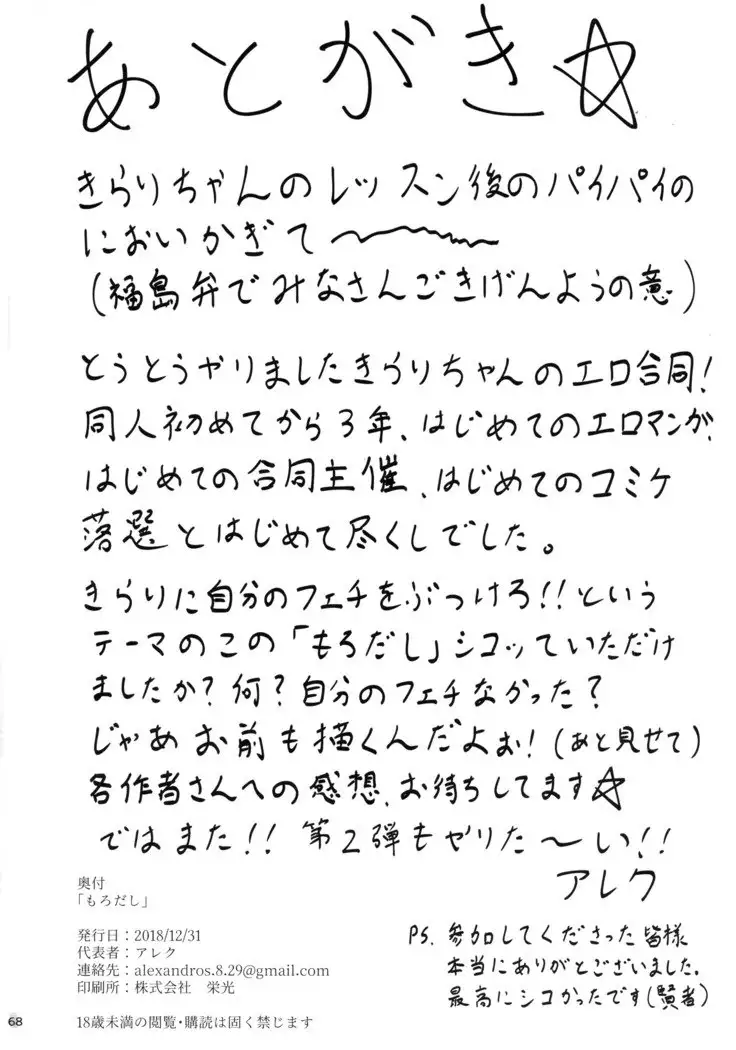 あとがき☆
きらりちゃんのレッスン後のパイパイの
においかぎて〜
(福島弁でみなさんごきげんようの意)
とうとうやりましたきらりちゃんのエロ合同!
同人初めてから3年、はじめてのエロマンガ、
はじめての合同主催、はじめてのコミケ
落選とはじめて尽くしでした。
きらりに自分のフェチをぶつけろ!!という
テーマのこの「もろだし」シコッていただけ
ましたか?何?自分のフェチなかった?
じゃあお前も描くんだよぉ!(あと見せて)
各作者さんへの感想、お待ちしてます☆
ではまた!!第2弾もやりた〜い!!
アレク
奥付
「もろだし」
発行日：2018/12/31
代表者：アレク
連絡先：alexandros.8.29@gmail.com
印刷所：株式会社　栄光
18歳未満の閲覧・購読は固く禁じます
PS. 参加してくださった皆様
本当にありがとございました。
最高にシコかったです(賢者)
68